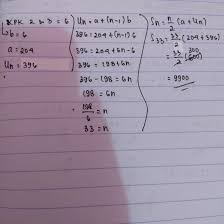 KPK 2 & 3 = 6
b = 6
a = 204
Un = 396
Un = a + (n-1) b
396 = 204 + (n-1) 6
396 = 204 + 6n - 6
396 = 198 + 6n
396 - 198 = 6n
198 = 6n
198/6 = n
33 = n
Sn = n/2 (a + Un)
S33 = 33/2 (204 + 396)
= 33/2 (600) 300
= 9900